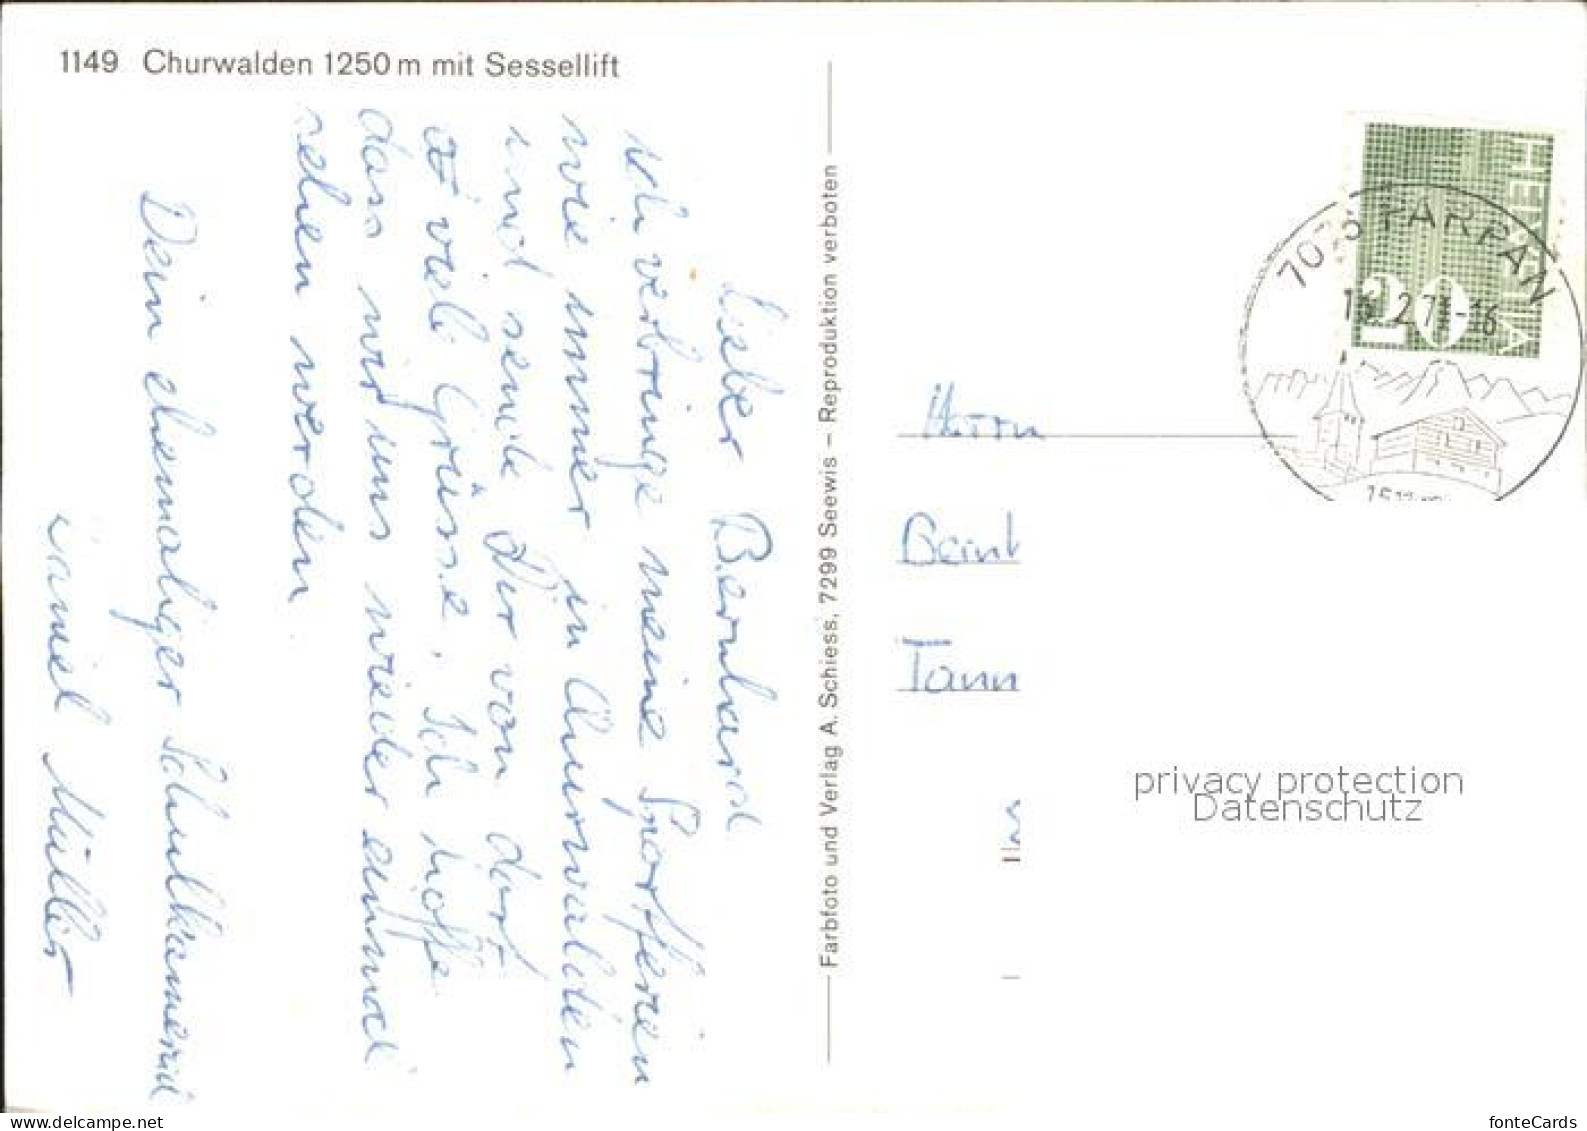 1149 Churwalden 1250 m mit Sessellift
Lieber Bernhard
ich verbringe meine Sportferien
wie immer in Churwalden
und sende Dir von dort
viele Grüsse. Ich hoffe
dass wir uns wieder einmal
sehen werden.
Dein ehemaliger Schulkamerad
Daniel Müller
Farbfoto und Verlag A. Schiess, 7299 Seewis – Reproduktion verboten
HELVETIA
10
PARPAN
Herrn
Tann
privacy protection
Datenschutz
www.delcampe.net
fonteCards